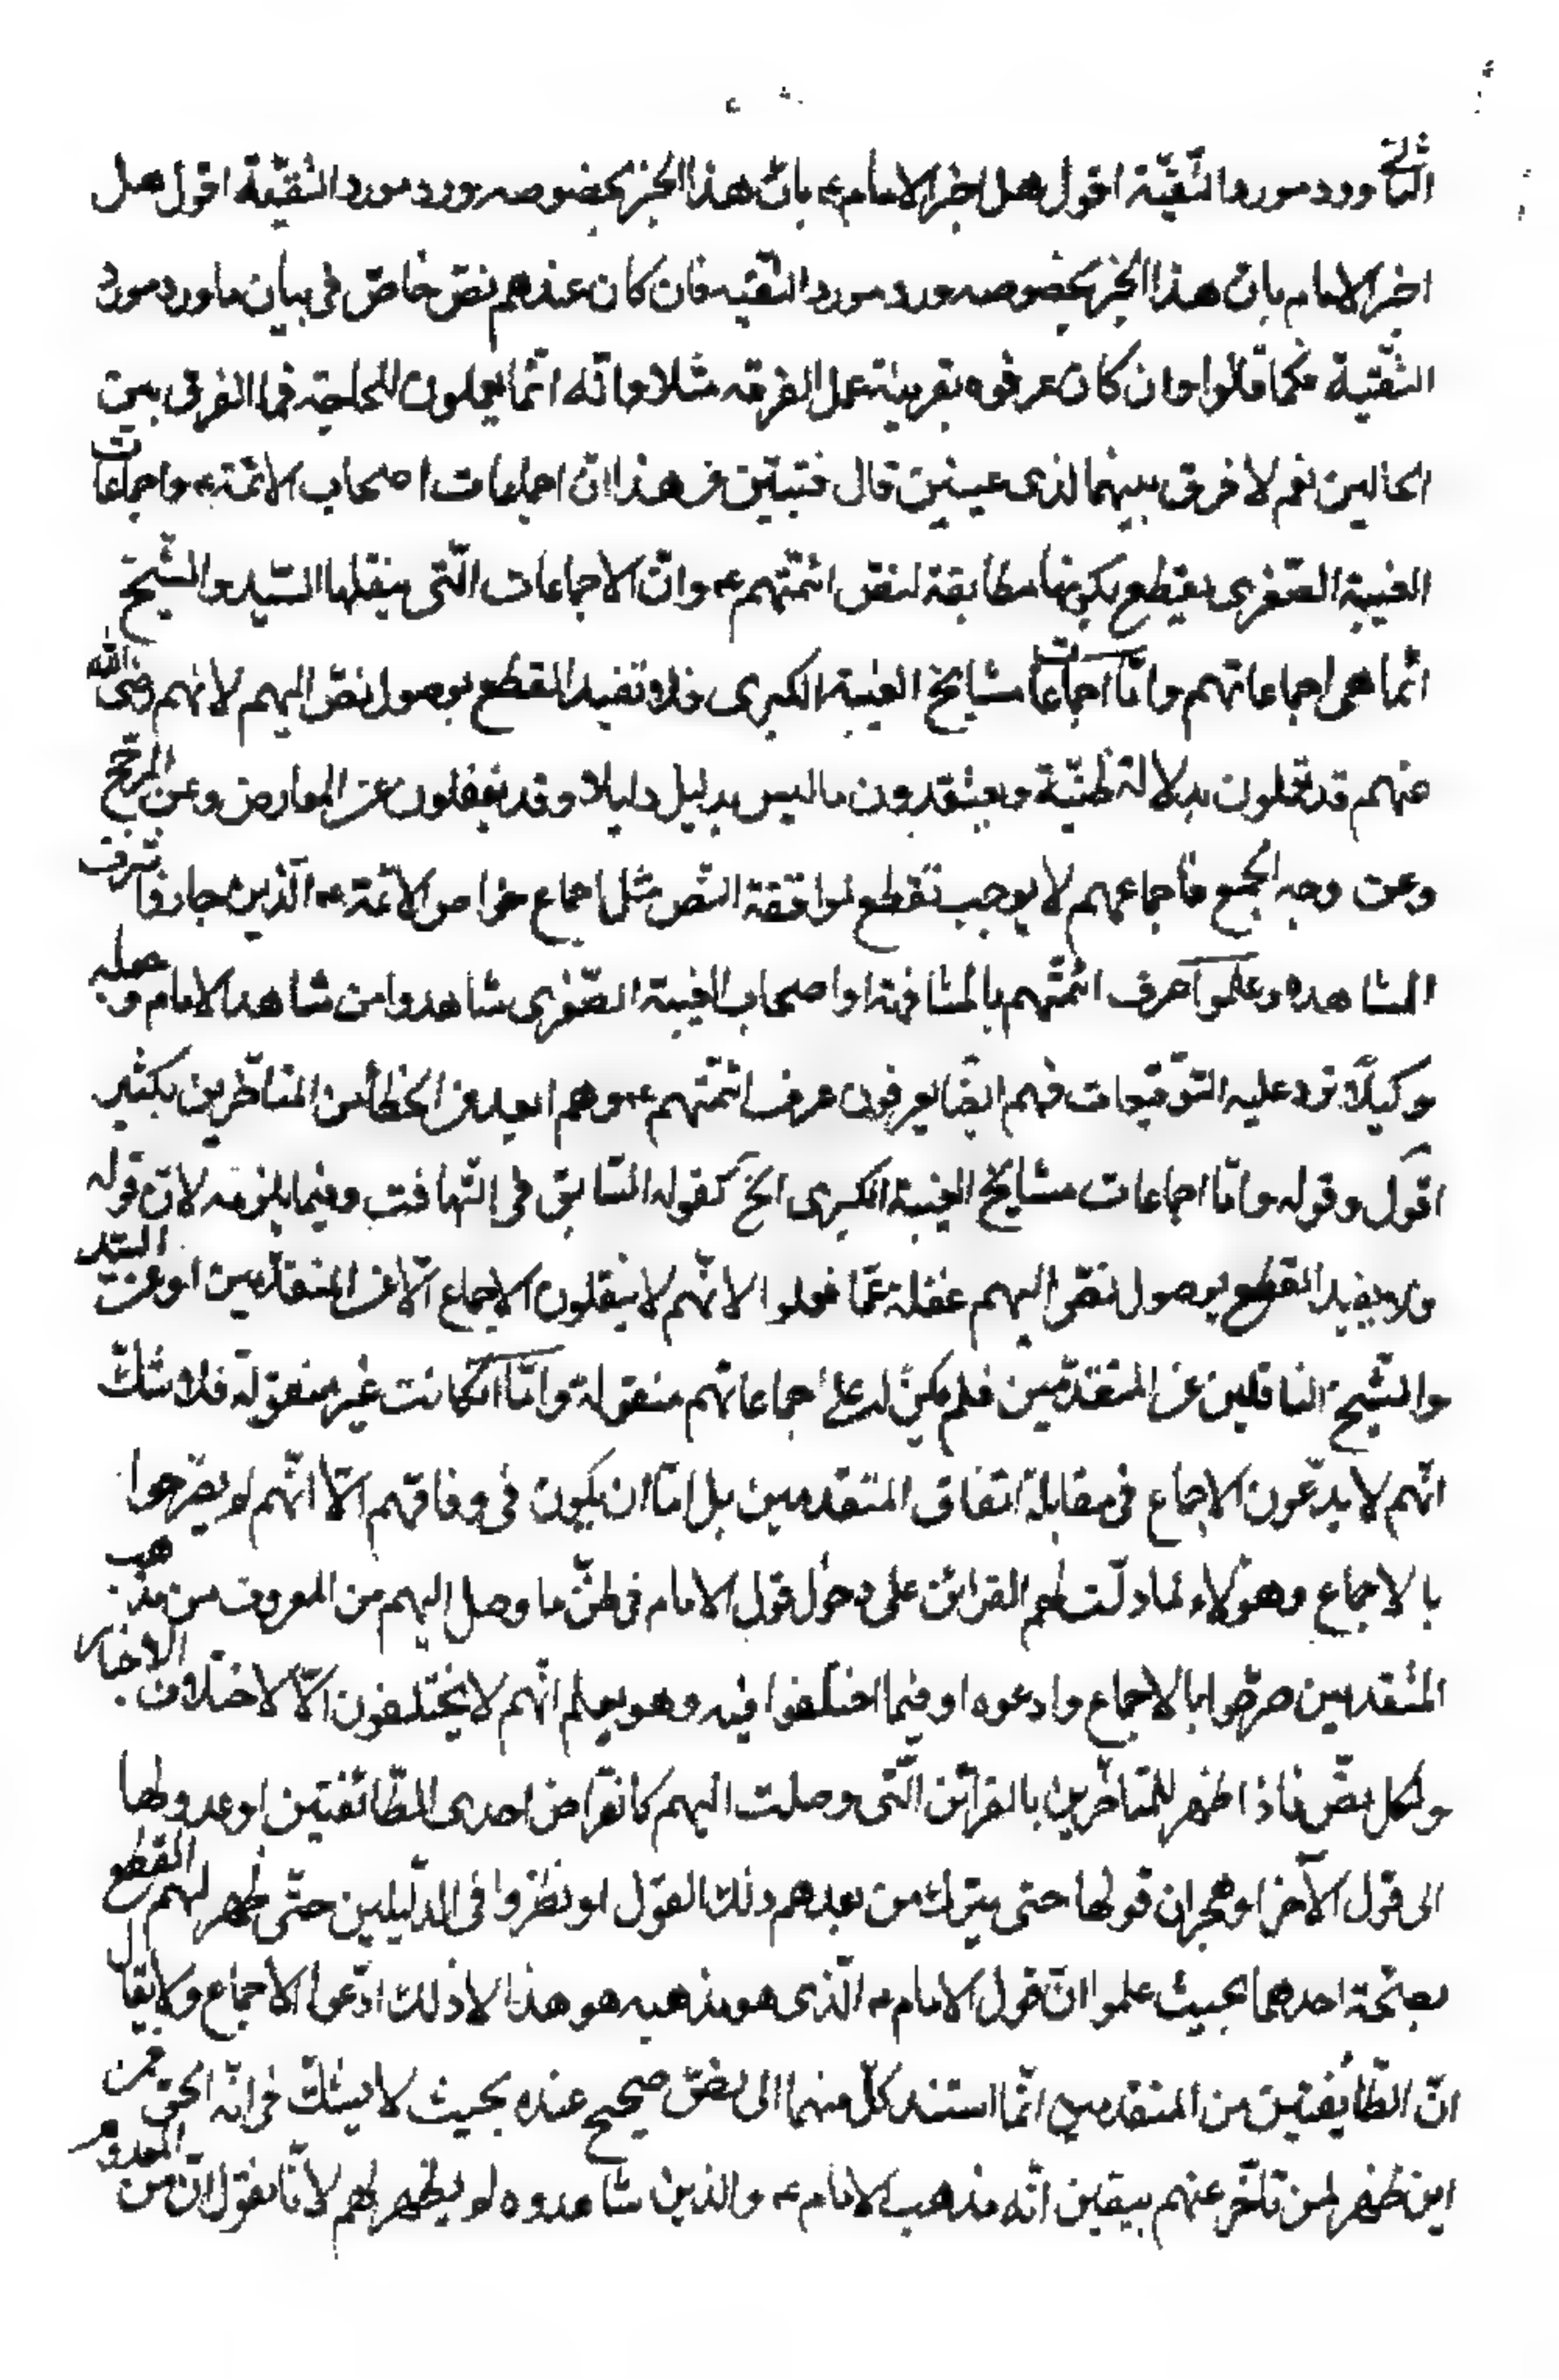 الثالث ورد مورد التّقيّة اقول هل اخبر الامام ع بانّ هذا الخبر بخصوصه ورد مورد التقيّة اقول هل
اخبر الامام بانّ هذا الخبر بخصوصه ورد مورد التّقيه فان كان عندهم نصّ خاصّ فى بيان ما ورد مورد
التّقيّة فكما قالوا وان كان عرفوه بقرينة عمل الفرقه مثلا وانّه انّما يعملون للحاجة فما الفرق بين
الحالين نعم لا فرق بينهما لذى عينين قال فتبيّن من هذا انّ اجماعات اصحاب الائمّة ع واجماعات
الغيبة الصّغرى يقطع بكونها مطابقة لنصّ ائمّتهم ع وانّ الاجماعات الّتى ينقلها السّيد والشّيخ
انّما هى اجماعاتهم وامّا اجماعات مشايخ الغيبة الكبرى فلا تفيد القطع بوصول نصّ اليهم لانهم رضى الله
عنهم قد يقولون بدلالة ظنيّة ويعتقدون ما ليس بدليل دليلا وقد يغفلون عن المعارض وعن المرجّح
وعن وجه الجمع فاجماعهم لا يوجب تقطع لموافقة النّص مثل اجماع خواص الائمّة ع الّذين جازوا شرف
المشاهده وعلموا عرف ائمّتهم بالمشافهة او اصحاب الغيبة الصّغرى شاهدوا من شاهد الامام وجعله
وكيلًا ترد عليه التّوقيعات فهم ايضًا يعرفون عرف ائمّتهم ع وهم ابعد من الخطأ من المتأخّرين بكثير
اقول وقوله وامّا اجماعات مشايخ الغيبة الكبرى الخ كقوله السّابق فى التّهافت وفيما يلزمه لانّ قوله
ولا يفيد القطع بوصول نصّ اليهم غفلة عمّا فعلوا لانّهم لا ينقلون الاجماع الّا عن المتقدّمين او عن السّيد
والشّيخ النّاقلين عن المتقدّمين فلم يكن له على اجماعاتهم منقولة وامّا ان كانت غير منقولة فلا شكّ
انّهم لا يدّعون الاجماع فى مقابلة اتفاق المتقدمين بل امّا ان يكون فى وفاقهم الّا انّهم لم يصرّحوا
بالاجماع وهؤلاء لما دلّت لهم القرائن على دخول قول الامام فى ظنّ ما وصل اليهم من المعروف من مذهب
المتقدمين صرّحوا بالاجماع وادعوه او فيما اختلفوا فيه وهو يعلم انّهم لا يختلفون الّا لاختلاف الاخبار
ولكل نصّ فاذا ظهر للمتأخّرين بالقرائن الّتى وصلت اليهم كانقراض احدى الطّائفتين او عدولها
الى قول الآخر او هجران قولها حتى يترك من بعدهم ذلك القول او نظروا فى الدّليلين حتّى ظهر لهم القطع
بصحّة احدهما بحيث علموا انّ قول الامام ع الّذى هو مذهبه هو هذا لا ذلك ادّعوا الاجماع ولا يقال
انّ الطّائفتين من المتقدمين انّما استند كلّ منهما الى نصّ صحيح عنده بحيث لا يشكّ فى انّه الحق فمن
اين ظهر لمن تأخّر عنهم بيقين انّه مذهب الامام ع والذين شاهدوه لم يظهر لهم لانّا نقول انّ من المعلوم